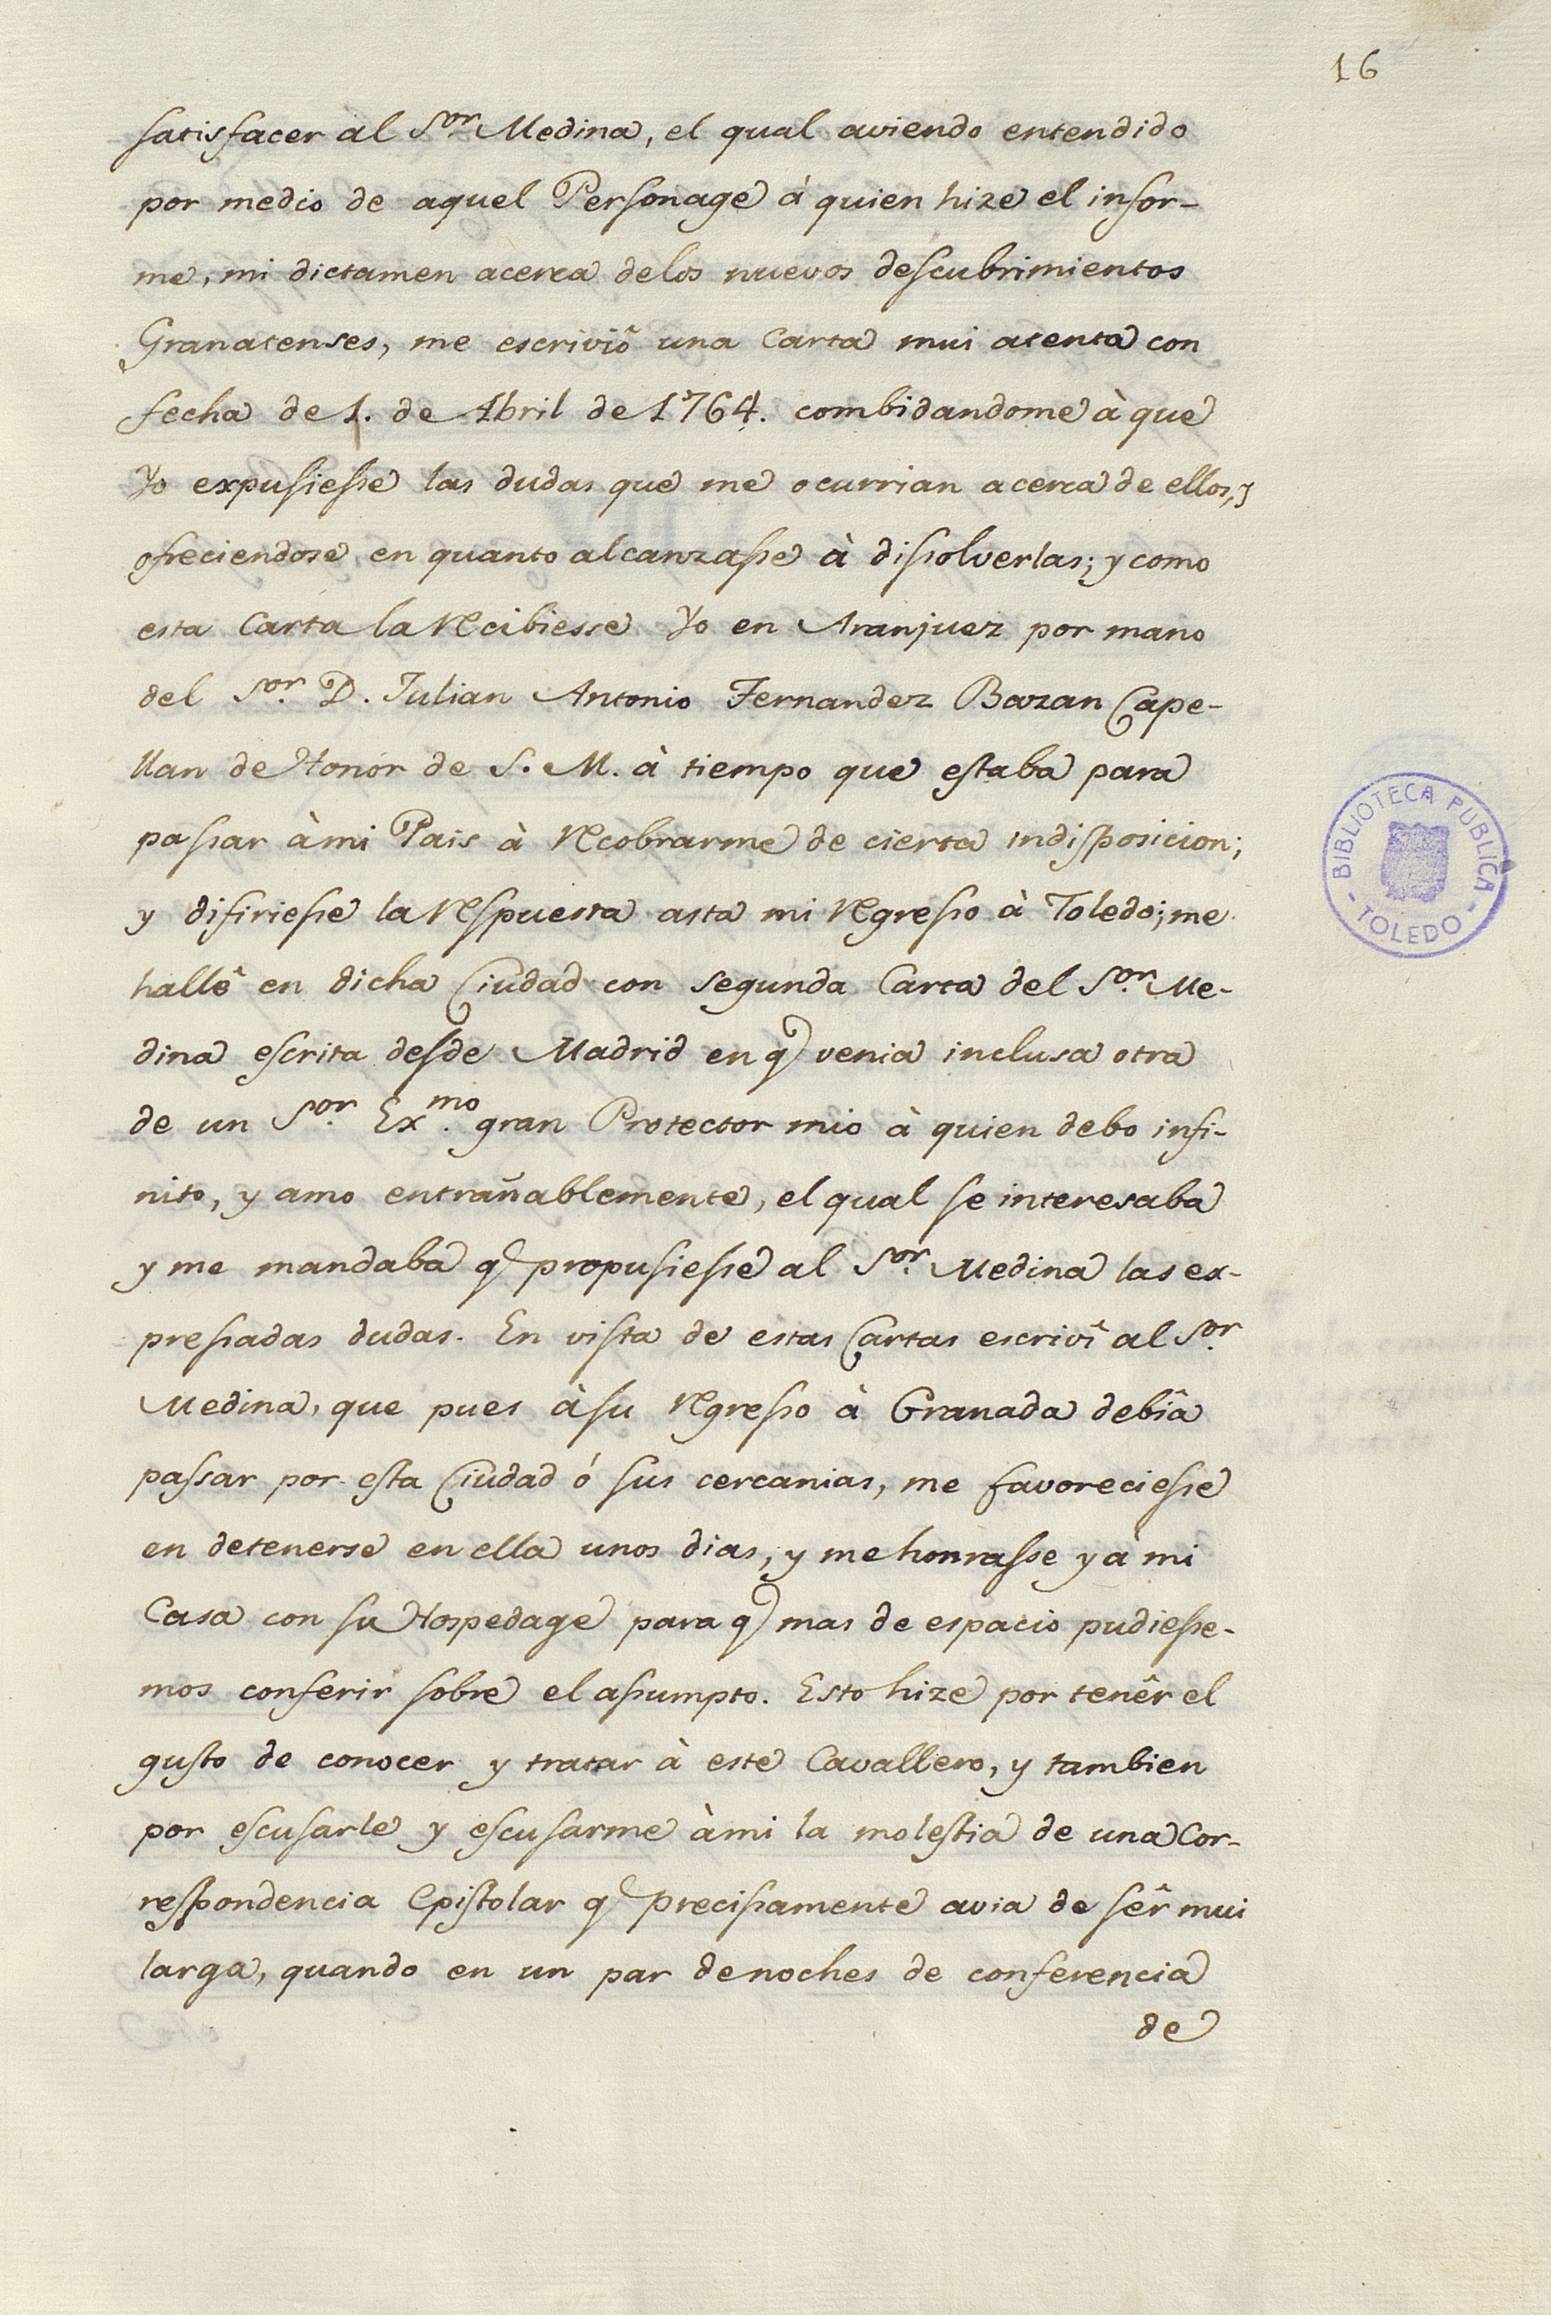 16
satisfacer al S.or Medina, el qual aviendo entendido
por medio de aquel Personage à quien hize el infor-
me, mi dictamen acerca delos nuevos descubrimientos
Granatenses, me escriviô una Carta mui atenta con
fecha de 1. de Abril de 1764. combidandome à que
Yo expusiesse las dudas que me ocurrian acerca de ellos, y
ofreciendose en quanto alcanzasse à dissolverlas; y como
esta Carta la recibiesse Yo en Aranjuez por mano
del S.or D. Julian Antonio Fernandez Bazan Cape-
llan de Honor de S. M. à tiempo que estaba para
passar à mi Pais à recobrarme de cierta indisposicion;
y difiriesse la respuesta asta mi regresso à Toledo; me
hallê en dicha Ciudad con segunda Carta del S.or Me-
dina escrita desde Madrid en q venia inclusa otra
de un S.or Ex.mo gran Protector mio à quien debo infi-
nito, y amo entrañablemente, el qual se interesaba
y me mandaba q propusiesse al S.or Medina las ex-
pressadas dudas. En vista de estas Cartas escrivî al S.or
Medina, que pues à su regresso à Granada debîa
passar por esta Ciudad ó sus cercanias, me favoreciesse
en detenerse en ella unos dias, y me honrasse y à mi
Casa con su Hospedage para q mas de espacio pudiesse-
mos conferir sobre el assumpto. Esto hize por tenêr el
gusto de conocer y tratar à este Cavallero, y tambien
por escusarle y escusarme à mi la molestia de una Cor-
respondencia Epistolar q precissamente avia de sêr mui
larga, quando en un par de noches de conferencia
de
BIBLIOTECA PUBLICA
- TOLEDO -